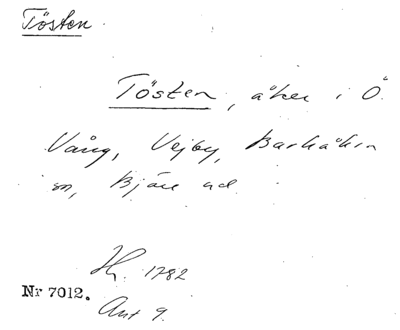 Tösten
Tösten, åker i Ö.
Vång, Vejby, Barkåkra
sn, Bjäre hd
H. 1782
Nr 7012.
Akt 9.